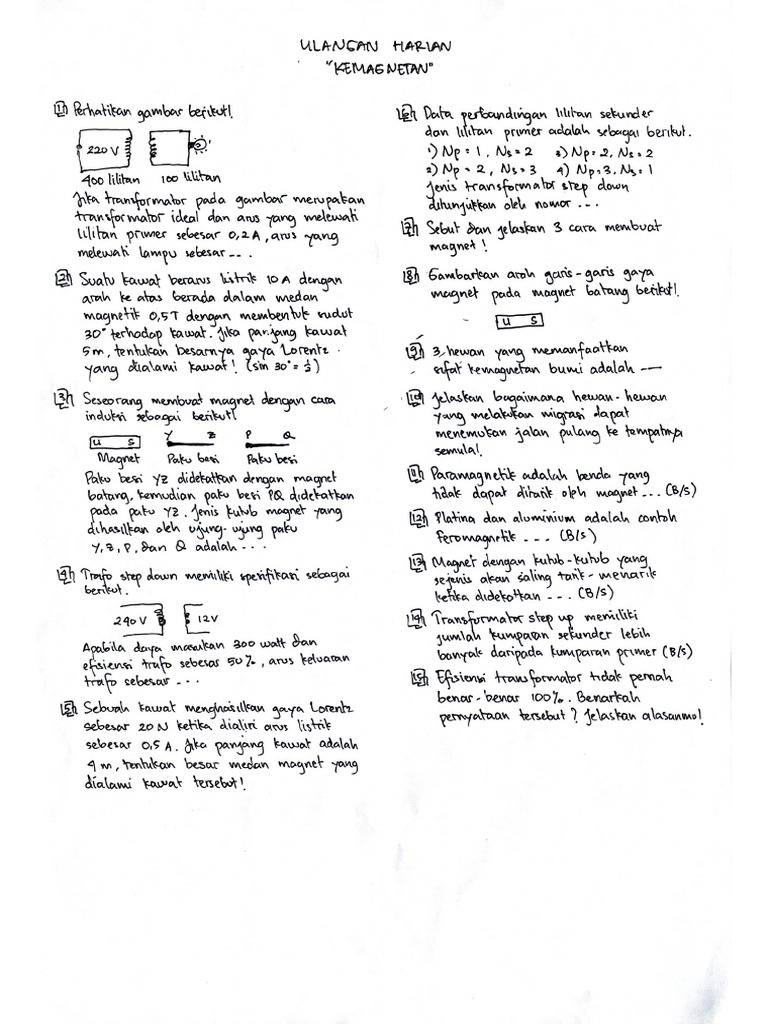 ULANGAN HARIAN
"KEMAGNETAN"
1. Perhatikan gambar berikut!
220 V
400 lilitan 100 lilitan
Jika transformator pada gambar merupakan
transformator ideal dan arus yang melewati
lilitan primer sebesar 0,2 A, arus yang
melewati lampu sebesar ...
2. Suatu kawat berarus listrik 10 A dengan
arah ke atas berada dalam medan
magnetik 0,5 T dengan membentuk sudut
30° terhadap kawat. Jika panjang kawat
5 m, tentukan besarnya gaya Lorentz
yang dialami kawat! (sin 30° = 1/2)
3. Seseorang membuat magnet dengan cara
induksi sebagai berikut!
U S Y Z P Q
Magnet Paku besi Paku besi
Paku besi YZ didekatkan dengan magnet
batang, kemudian paku besi PQ didekatkan
pada paku YZ. Jenis kutub magnet yang
dihasilkan oleh ujung-ujung paku
Y, Z, P, dan Q adalah ...
4. Trafo step down memiliki spesifikasi sebagai
berikut.
240 V 12 V
Apabila daya masukan 300 watt dan
efisiensi trafo sebesar 50%, arus keluaran
trafo sebesar ...
5. Sebuah kawat menghasilkan gaya Lorentz
sebesar 20 N ketika dialiri arus listrik
sebesar 0,5 A. Jika panjang kawat adalah
4 m, tentukan besar medan magnet yang
dialami kawat tersebut!
6. Data perbandingan lilitan sekunder
dan lilitan primer adalah sebagai berikut.
1) Np = 1, Ns = 2 3) Np = 2, Ns = 2
2) Np = 2, Ns = 3 4) Np = 3, Ns = 1
Jenis transformator step down
ditunjukkan oleh nomor ...
7. Sebut dan jelaskan 3 cara membuat
magnet!
8. Gambarkan arah garis-garis gaya
magnet pada magnet batang berikut!
U S
9. 3 hewan yang memanfaatkan
sifat kemagnetan bumi adalah —
10. Jelaskan bagaimana hewan-hewan
yang melakukan migrasi dapat
menemukan jalan pulang ke tempatnya
semula!
11. Paramagnetik adalah benda yang
tidak dapat ditarik oleh magnet ... (B/S)
12. Platina dan aluminium adalah contoh
feromagnetik ... (B/S)
13. Magnet dengan kutub-kutub yang
sejenis akan saling tarik-menarik
ketika didekatkan ... (B/S)
14. Transformator step up memiliki
jumlah kumparan sekunder lebih
banyak daripada kumparan primer (B/S)
15. Efisiensi transformator tidak pernah
benar-benar 100%. Benarkah
pernyataan tersebut? Jelaskan alasanmu!